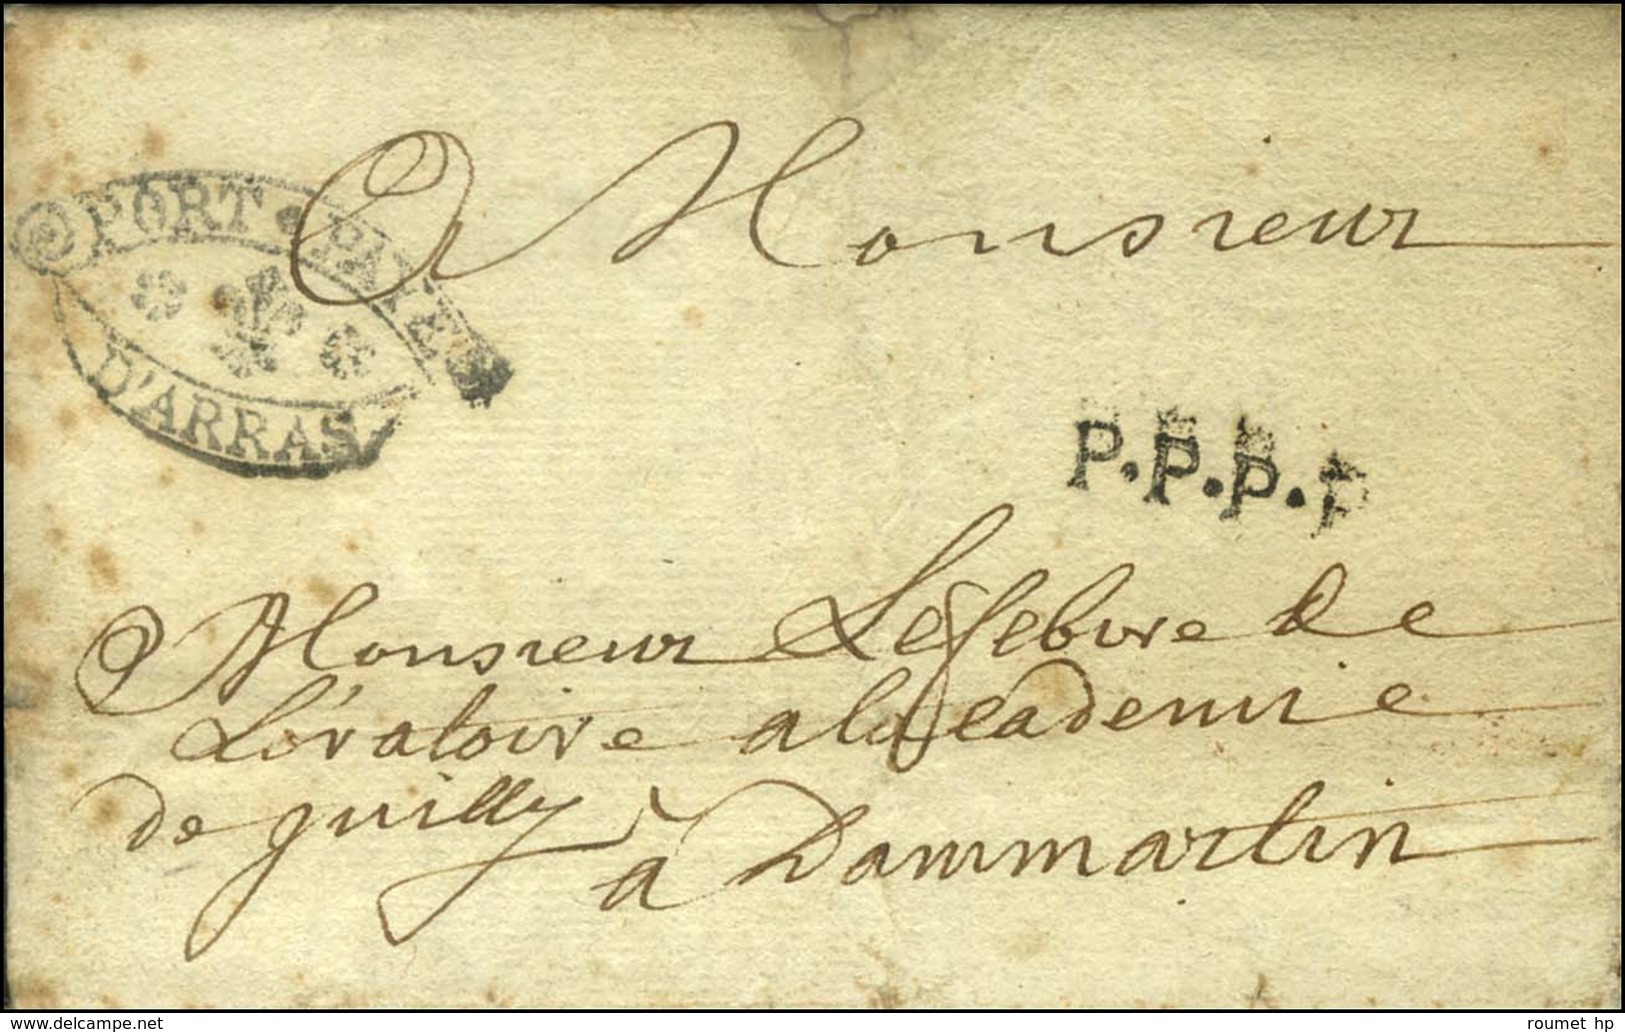 PORT PAYÉ
D'ARRAS
A Monsieur
P.P.P.P
Monsieur Lefebvre de
L'oratoire a lacademie
de juilly
à Dammartin
delcampe.net
roumet hp